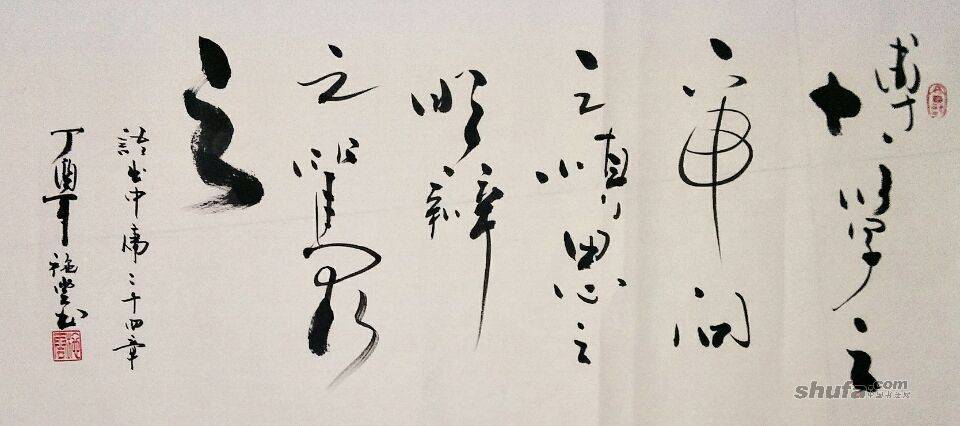 博学之
审问
之慎思之
明辨
之笃行
之
語出中庸二十四章
丁酉年书
shufa.com
中国书法网